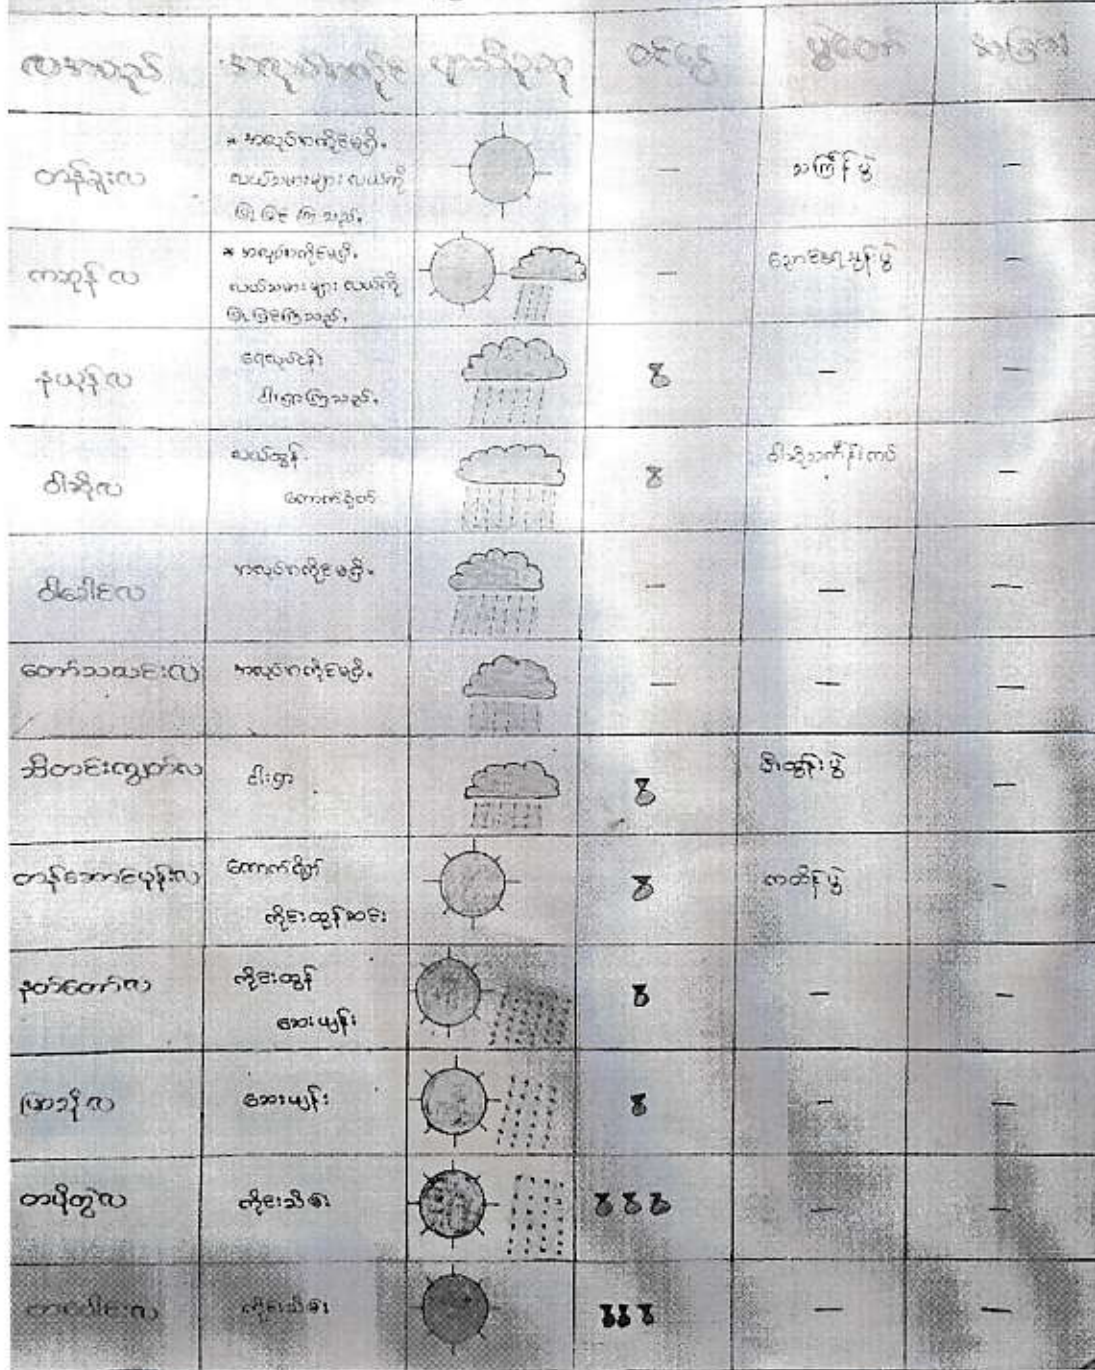 လအမည် အလုပ်အကိုင် ရာသီဥတု ဝင်ငွေ ပွဲတော်
တန်ခူးလ
* အလုပ်အကိုင်မရှိ၊
လယ်သမားများ လယ်ကို
ပြုပြင်ကြသည်၊
— သင်္ကြန်ပွဲ —
ကဆုန်လ
* အလုပ်အကိုင်မရှိ၊
လယ်သမားများ လယ်ကို
ပြုပြင်ကြသည်၊
— ညောင်ရေသွန်းပွဲ —
နယုန်လ
ရေလုပ်ငန်း
ငါးရှာကြသည်၊
— —
ဝါဆိုလ
လယ်ထွန်
ကောက်စိုက်
ဝါဆိုသင်္ကန်းကပ် —
ဝါခေါင်လ အလုပ်အကိုင်မရှိ၊ — — —
တော်သလင်းလ အလုပ်အကိုင်မရှိ၊ — — —
သီတင်းကျွတ်လ ငါးရှာ မီးထွန်းပွဲ —
တန်ဆောင်မုန်းလ
ကောက်ရိတ်
ကိုင်းထွန်ဆင်း
ကထိန်ပွဲ —
နတ်တော်လ
ကိုင်းထွန်
ဆေးပျိုး
— —
ပြာသိုလ ဆေးပျိုး — —
တပို့တွဲလ ကိုင်းသိမ်း — —
တပေါင်းလ ကိုင်းသိမ်း — —